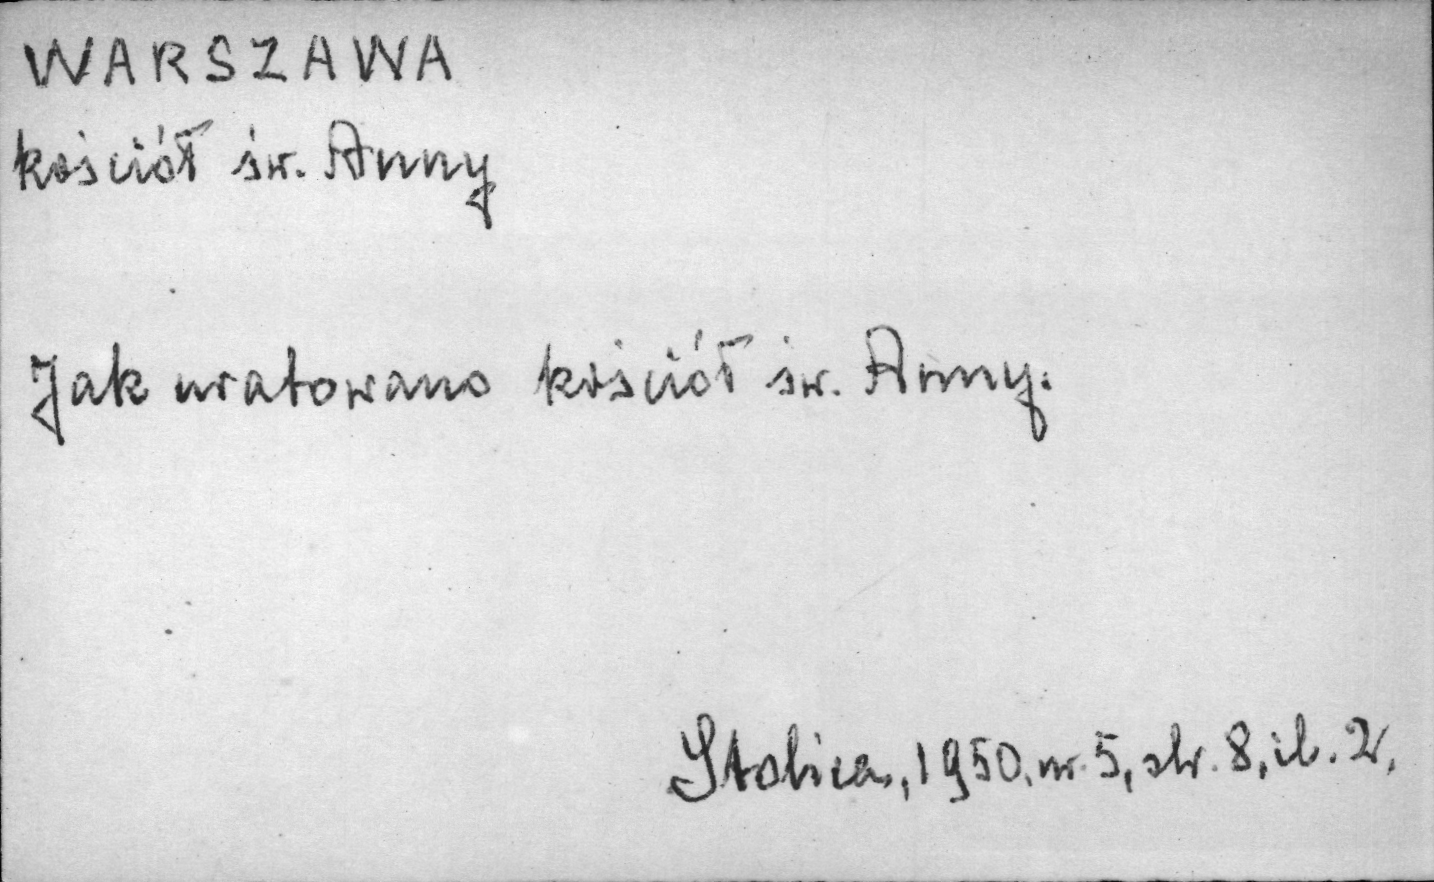 WARSZAWA
kościół św. Anny
Jak uratowano kościół św. Anny.
Stolica, 1950, nr. 5, str. 8, il. 2,